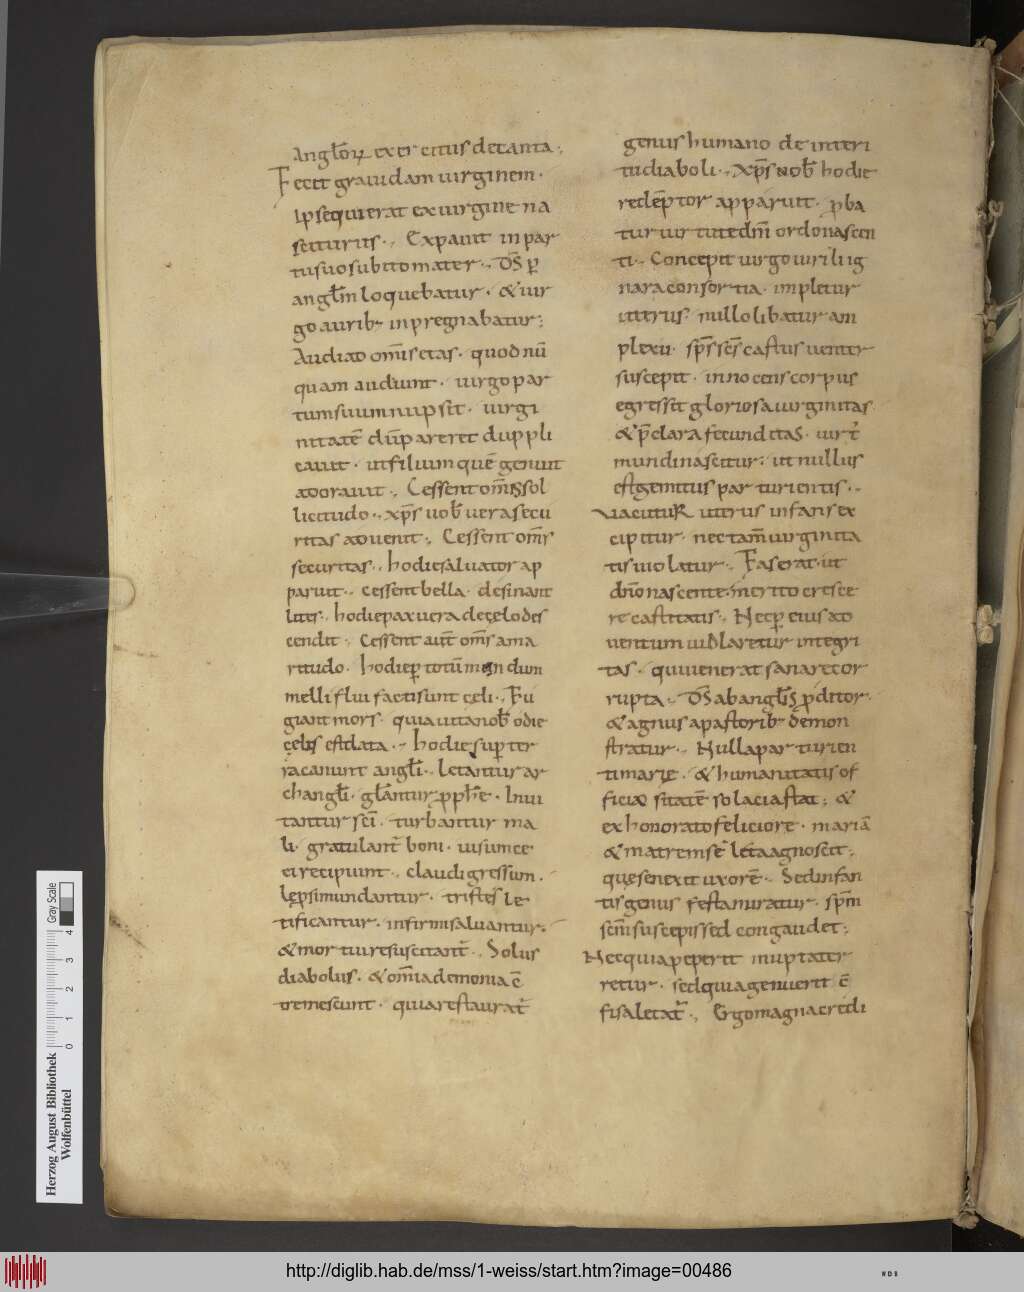 anglōꝝ exercitus decanta·,
Fecit gravidam uirginem·
ipse qui erat ex uirgine na
sciturus·, Expauit in par
tu suo subito mater·, D̄S ꝑ
anglm̄ loquebatur· & uir
go aurib; inpregnabatur;
Audiad om̄is etas· quod nū
quam audiunt· uirgo par
tum suum nupsit· uirgi
nitatē dū pareret duppli
cauit· ut filium quē genuit
adorauit·, Cessent om̄is sol
licitudo·, xp̄s nob̄ uera secu
ritas aduenit·, Cessent om̄s
securitas·, hodie saluator ap
paruit·, cessent bella· desinant
lites·, hodie pax uera de cęlo des
cendit·, Cessent aut̄ om̄s ama
ritudo· hodie ꝑ totū mundum
melliflui facti sunt cęli·, Fu
giant mors· quia uita nob̄ odie
cęlis est data·, hodie super ter
ra canunt angłi·, letantur ar
changłi· głantur ꝓph̄e· Inui
tantur sc̄i· turbantur ma
li· gratulant̄ boni· uisum ce
ci recipiunt·, claudi gressum·
lępsi mundantur· tristes le
tificantur· infirmi saluantur·,
& mortui resuscitant̄·, Solus
diabolus· & om̄ia demonia c̄
tremescunt· quia restaurat̄
genus humano de interi
tu diaboli·, xp̄s nob̄ hodie
redēptor apparuit· ꝓba
tur uirtutedm̄ ordo nascen
ti·, Concepit uirgo uirili ig
nara consortia· impletur
uterus· nullo libatur am
plexu· sp̄s sc̄s castus uenter
suscepit· innocens corpus
egressit gloriosa uirginitas·
& p̄clara fecunditas· uirt̄
mundi nascitur· ut nullus
est gemitus parturientis·,
Uacuitur uterus infans ex
cipitur· nec tam̄ uirginita
tis uiolatur·, Fas erat ut
dn̄o nascente· merito cresce
re castitatis·, Nec ꝑ eius ad
uentum uiolaretur integri
tas· qui uenerat sanare cor
rupta·, D̄S ab angłis ꝓditor·
& agnus a pastorib; demon
stratur·, Nulla parturien
ti marię· & humanitatis of
ficia sitatē solacia stat; &
ex honorato feliciore· mariā
& matrem sē leta agnoscit·,
quę senexit uxorē·, Sed infan
tis genus festanuratur· sp̄m
sc̄m suscepis sed congaudet·,
Nec quia peperit inuptater
retur· sed quia genuerit ē
fisa letat̄·, Ergo magna credi
Herzog August Bibliothek
Wolfenbüttel
0 1 2 3 4
Gray Scale
http://diglib.hab.de/mss/1-weiss/start.htm?image=00486